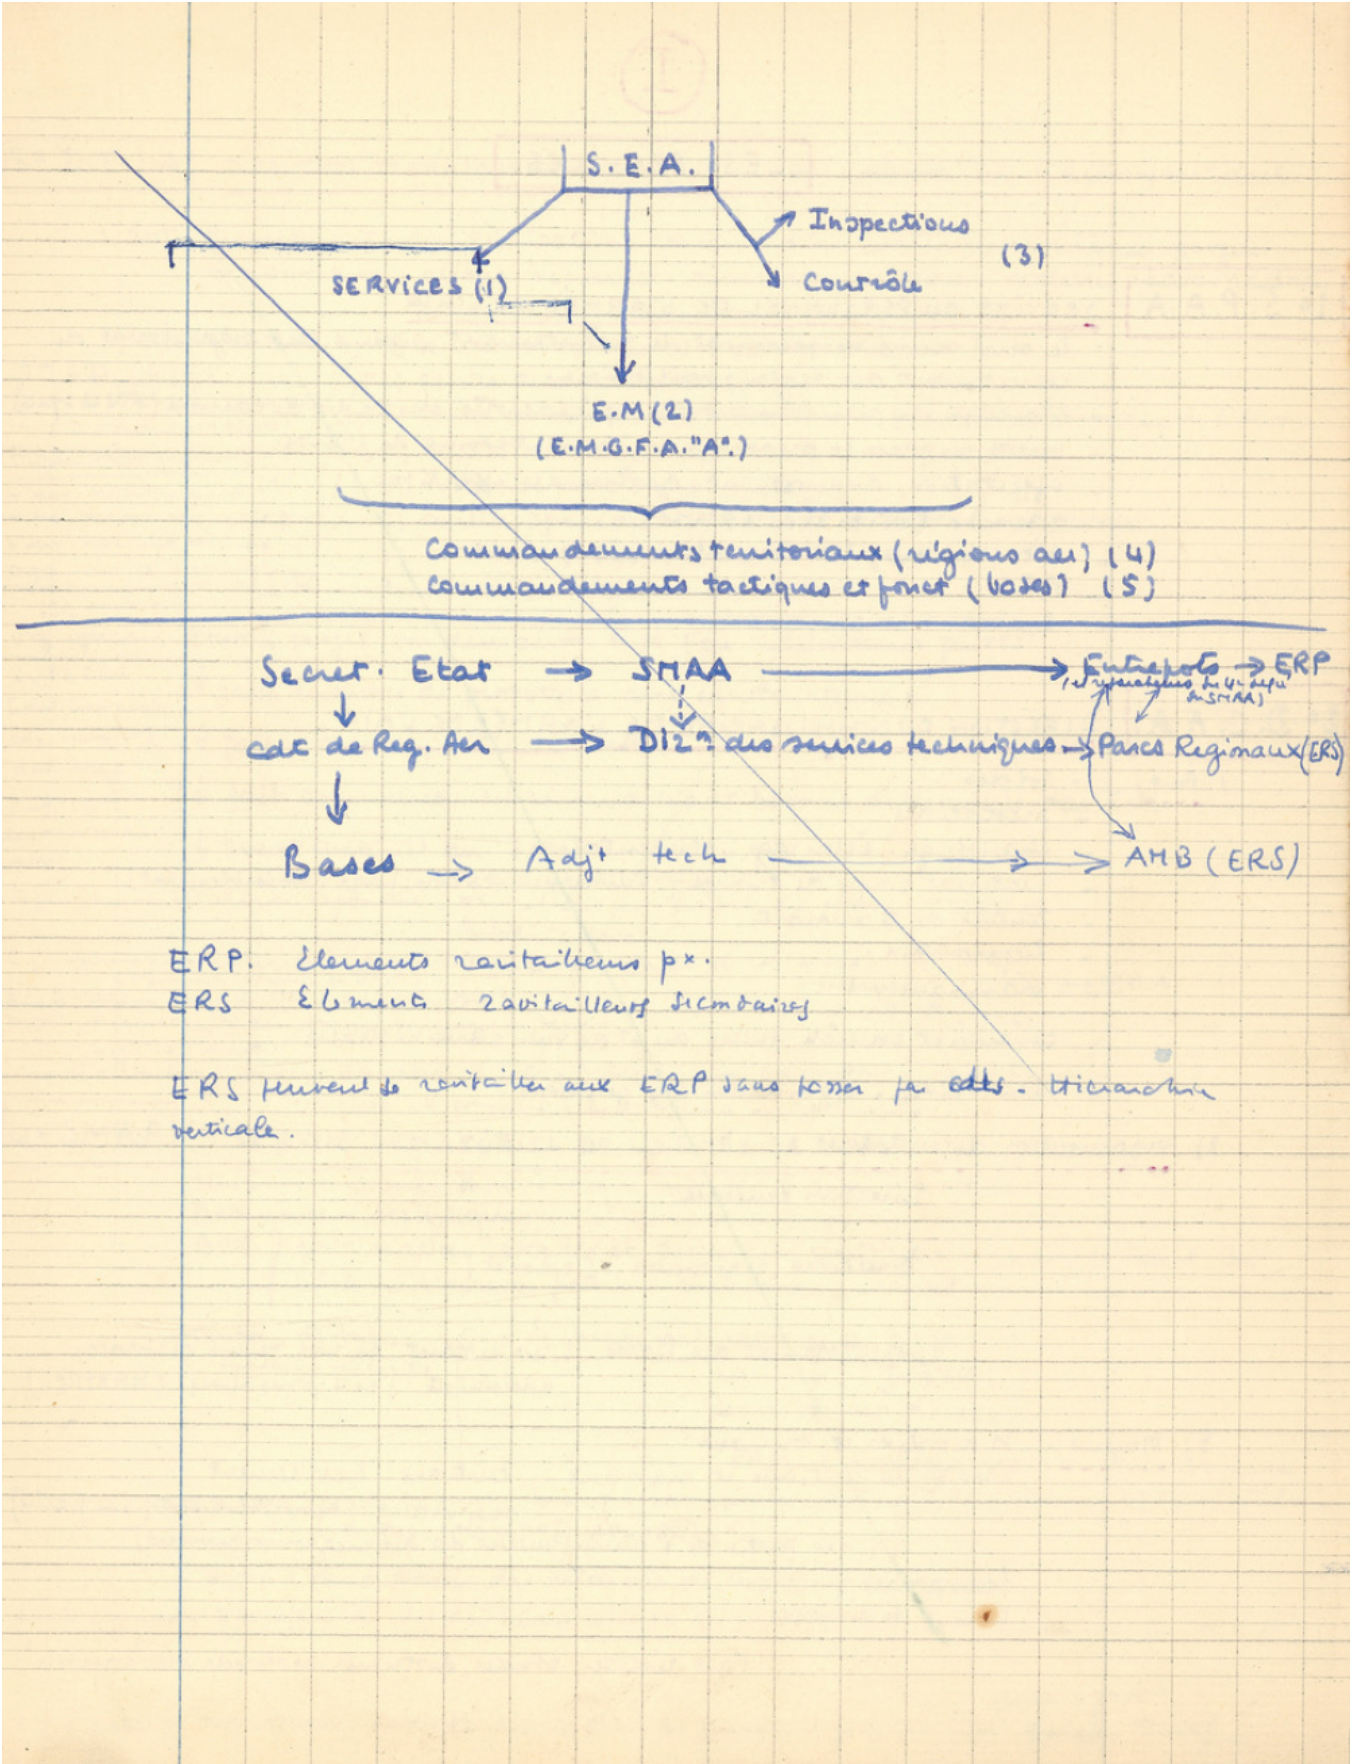 S.E.A.
Inspections
(3)
Contrôle
SERVICES (1)
E.M (2)
(E.M.G.F.A. "A".)
Commandements territoriaux (régions aer) (4)
Commandements tactiques et fonct (bases) (5)
Secret. Etat → SMAA → Entrepots → ERP
du SMAA)
Cdt de Reg. Aer → Di2n des services techniques → Parcs Regionaux (ERS)
Bases → Adjt tech → AMB (ERS)
ERP. Elements ravitailleurs px.
ERS Elements ravitailleurs secondaires
ERS peuvent se ravitailler aux ERP sans passer par cdts - Hierarchie
verticale.